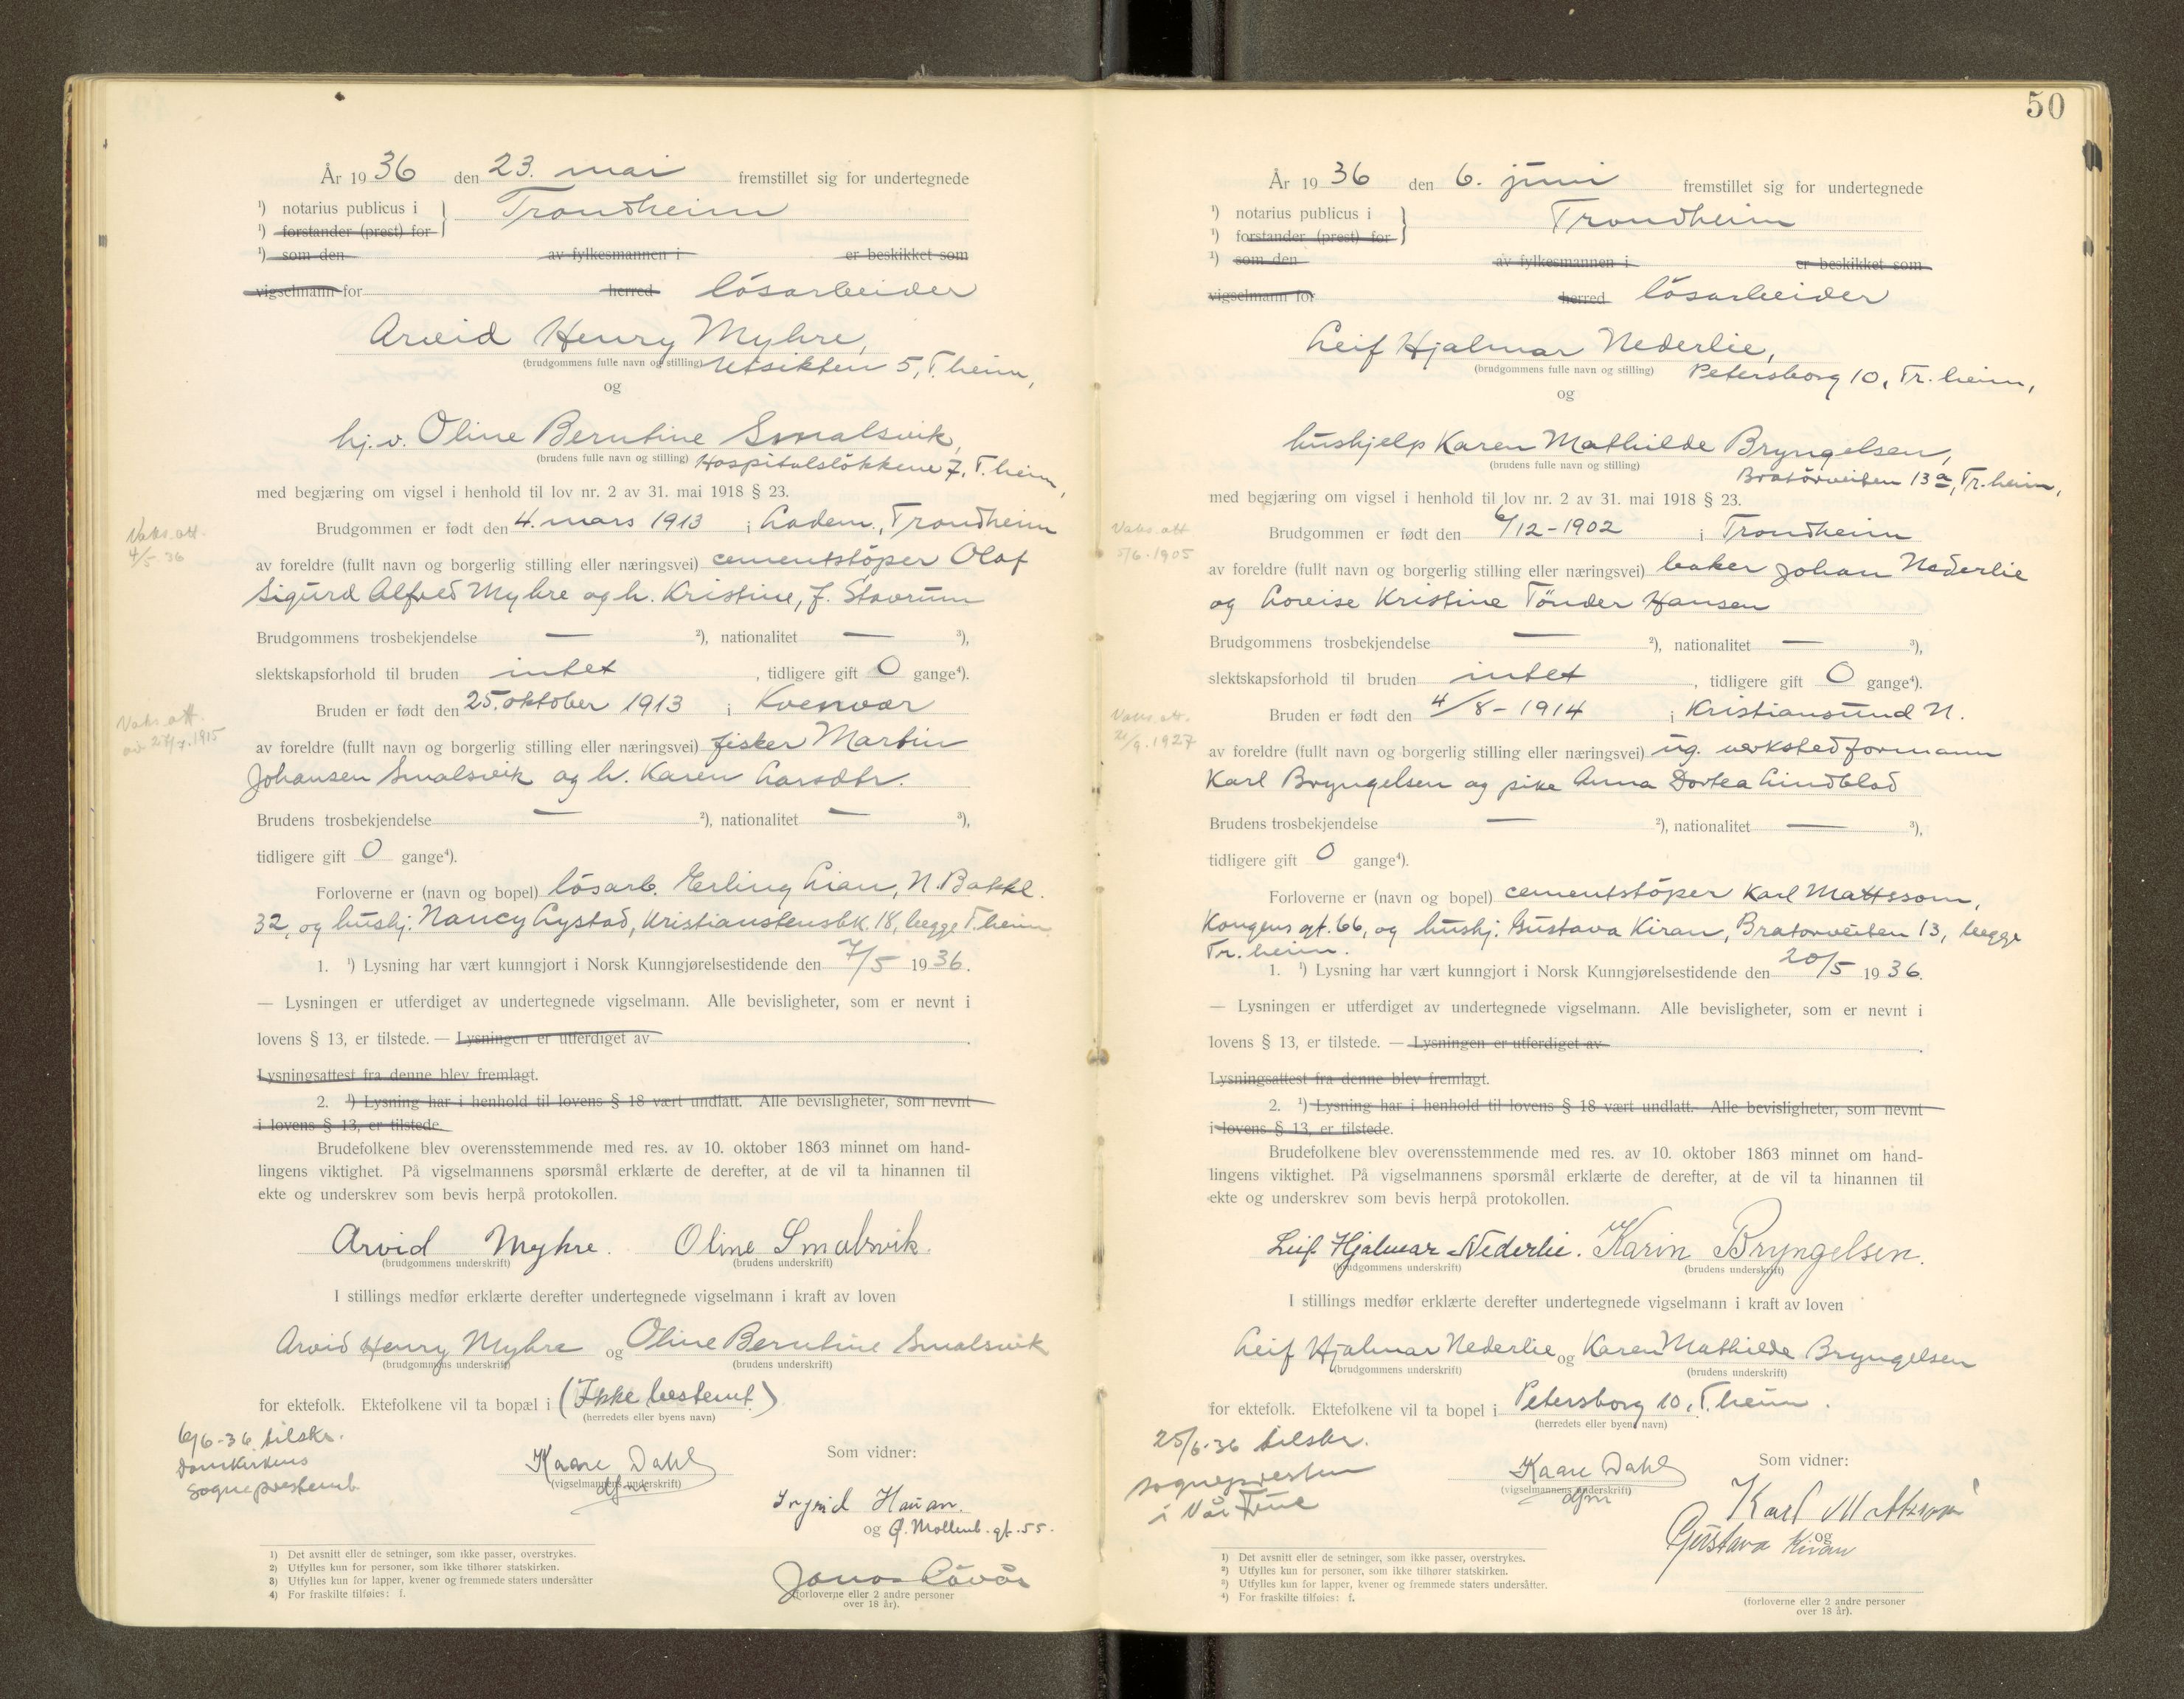 År 1936 den 23. mai fremstillet sig for undertegnede
¹) notarius publicus i } Trondheim
¹) forstander (prest) for
¹) som den av fylkesmannen i er beskikket som
vigselmann for herred lösarbeider
Arvid Henry Myhre,
(brudgommens fulle navn og stilling) Utsikten 5, T.heim,
og
hj.v. Oline Berntine Smalsvik,
(brudens fulle navn og stilling) Hospitalslökkene 7, T.heim,
med begjæring om vigsel i henhold til lov nr. 2 av 31. mai 1918 § 23.
Vaks. att.
4/5 36
Brudgommen er født den 4. mars 1913 i Ladem., Trondheim
av foreldre (fullt navn og borgerlig stilling eller næringsvei) cementstöper Olaf
Sigurd Alfred Myhre og h. Kristine, f. Stavrum
Brudgommens trosbekjendelse — ²), nationalitet — ³),
slektskapsforhold til bruden intet, tidligere gift 0 gange⁴).
Vaks. att.
Bruden er født den 25. oktober 1913 i Kvenvær
av foreldre (fullt navn og borgerlig stilling eller næringsvei) fisker Martin
Johansen Smalsvik og h. Karen Larsdtr.
Brudens trosbekjendelse — ²), nationalitet — ³),
tidligere gift 0 gange⁴).
Forloverne er (navn og bopel) lösarb. Erling Lian, N. Bakkl.
32, og hushj. Nancy Lystad, Kristianstensbk. 18, begge T.heim
1. ¹) Lysning har vært kunngjort i Norsk Kunngjørelsestidende den 7/5 1936.
— Lysningen er utferdiget av undertegnede vigselmann. Alle bevisligheter, som er nevnt i
lovens § 13, er tilstede. — Lysningen er utferdiget av .
Lysningsattest fra denne blev fremlagt.
2. ¹) Lysning har i henhold til lovens § 18 vært undlatt. Alle bevisligheter, som nevnt
i lovens § 13, er tilstede.
Brudefolkene blev overensstemmende med res. av 10. oktober 1863 minnet om hand-
lingens viktighet. På vigselmannens spørsmål erklærte de derefter, at de vil ta hinannen til
ekte og underskrev som bevis herpå protokollen.
Arvid Myhre. Oline Smalsvik.
(brudgommens underskrift) (brudens underskrift)
I stillings medfør erklærte derefter undertegnede vigselmann i kraft av loven
Arvid Henry Myhre og Oline Berntine Smalsvik
(brudgommens underskrift) (brudens underskrift)
for ektefolk. Ektefolkene vil ta bopæl i (Ikke bestemt.)
(herredets eller byens navn)
6/6-36 tilskr.
Domkirkens
sogneprestemb.
Kaare Dahl
(vigselmannens underskrift)
dfm
Som vidner:
Ingrid Hauan.
og Ø. Mollenb. gt. 55.
(forloverne eller 2 andre personer
over 18 år).
1) Det avsnitt eller de setninger, som ikke passer, overstrykes.
2) Utfylles kun for personer, som ikke tilhører statskirken.
3) Utfylles kun for lapper, kvener og fremmede staters undersåtter
4) For fraskilte tilføies: f.
50
År 1936 den 6. juni fremstillet sig for undertegnede
¹) notarius publicus i } Trondheim
¹) forstander (prest) for
¹) som den av fylkesmannen i er beskikket som
vigselmann for herred lösarbeider
Leif Hjalmar Nederlie,
(brudgommens fulle navn og stilling) Petersborg 10, Tr.heim,
og
hushjelp Karen Mathilde Bryngelsen,
(brudens fulle navn og stilling)
Bratörveiten 13a, Tr.heim,
med begjæring om vigsel i henhold til lov nr. 2 av 31. mai 1918 § 23.
Vaks. att
5/6-1905
Brudgommen er født den 6/12-1902 i Trondheim
av foreldre (fullt navn og borgerlig stilling eller næringsvei) baker Johan Nederlie
og Lovise Kristine Tönder Hansen
Brudgommens trosbekjendelse — ²), nationalitet — ³),
slektskapsforhold til bruden intet, tidligere gift 0 gange⁴).
Vaks. att.
21/9.1927
Bruden er født den 4/8-1914 i Kristiansund N.
av foreldre (fullt navn og borgerlig stilling eller næringsvei) ug. verkstedformann
Karl Bryngelsen og pike Anna Dortea Lindblad
Brudens trosbekjendelse — ²), nationalitet — ³),
tidligere gift 0 gange⁴).
Forloverne er (navn og bopel) cementstöper Karl Mattsson,
Kongens gt. 66, og hushj. Gustava Kiran, Bratörveiten 13, begge
Tr.heim.
1. ¹) Lysning har vært kunngjort i Norsk Kunngjørelsestidende den 20/5 1936.
— Lysningen er utferdiget av undertegnede vigselmann. Alle bevisligheter, som er nevnt i
lovens § 13, er tilstede. — Lysningen er utferdiget av .
Lysningsattest fra denne blev fremlagt.
2. ¹) Lysning har i henhold til lovens § 18 vært undlatt. Alle bevisligheter, som nevnt
i lovens § 13, er tilstede.
Brudefolkene blev overensstemmende med res. av 10. oktober 1863 minnet om hand-
lingens viktighet. På vigselmannens spørsmål erklærte de derefter, at de vil ta hinannen til
ekte og underskrev som bevis herpå protokollen.
Leif Hjalmar Nederlie. Karin Bryngelsen.
(brudgommens underskrift) (brudens underskrift)
I stillings medfør erklærte derefter undertegnede vigselmann i kraft av loven
Leif Hjalmar Nederlie og Karen Mathilde Bryngelsen
(brudgommens underskrift) (brudens underskrift)
for ektefolk. Ektefolkene vil ta bopel i Petersborg 10, T.heim.
(herredets eller byens navn)
25/6-36 tilskr.
sognepresten
i Vår Frue
Kaare Dahl
(vigselmannens underskrift)
dfm
Som vidner:
Karl Mattsson
og
Gustava Kiran
(forloverne eller 2 andre personer
over 18 år).
¹) Det avsnitt eller de setninger, som ikke passer, overstrykes.
²) Utfylles kun for personer, som ikke tilhører statskirken.
³) Utfylles kun for lapper, kvener og fremmede staters undersåtter.
⁴) For fraskilte tilføies: f.